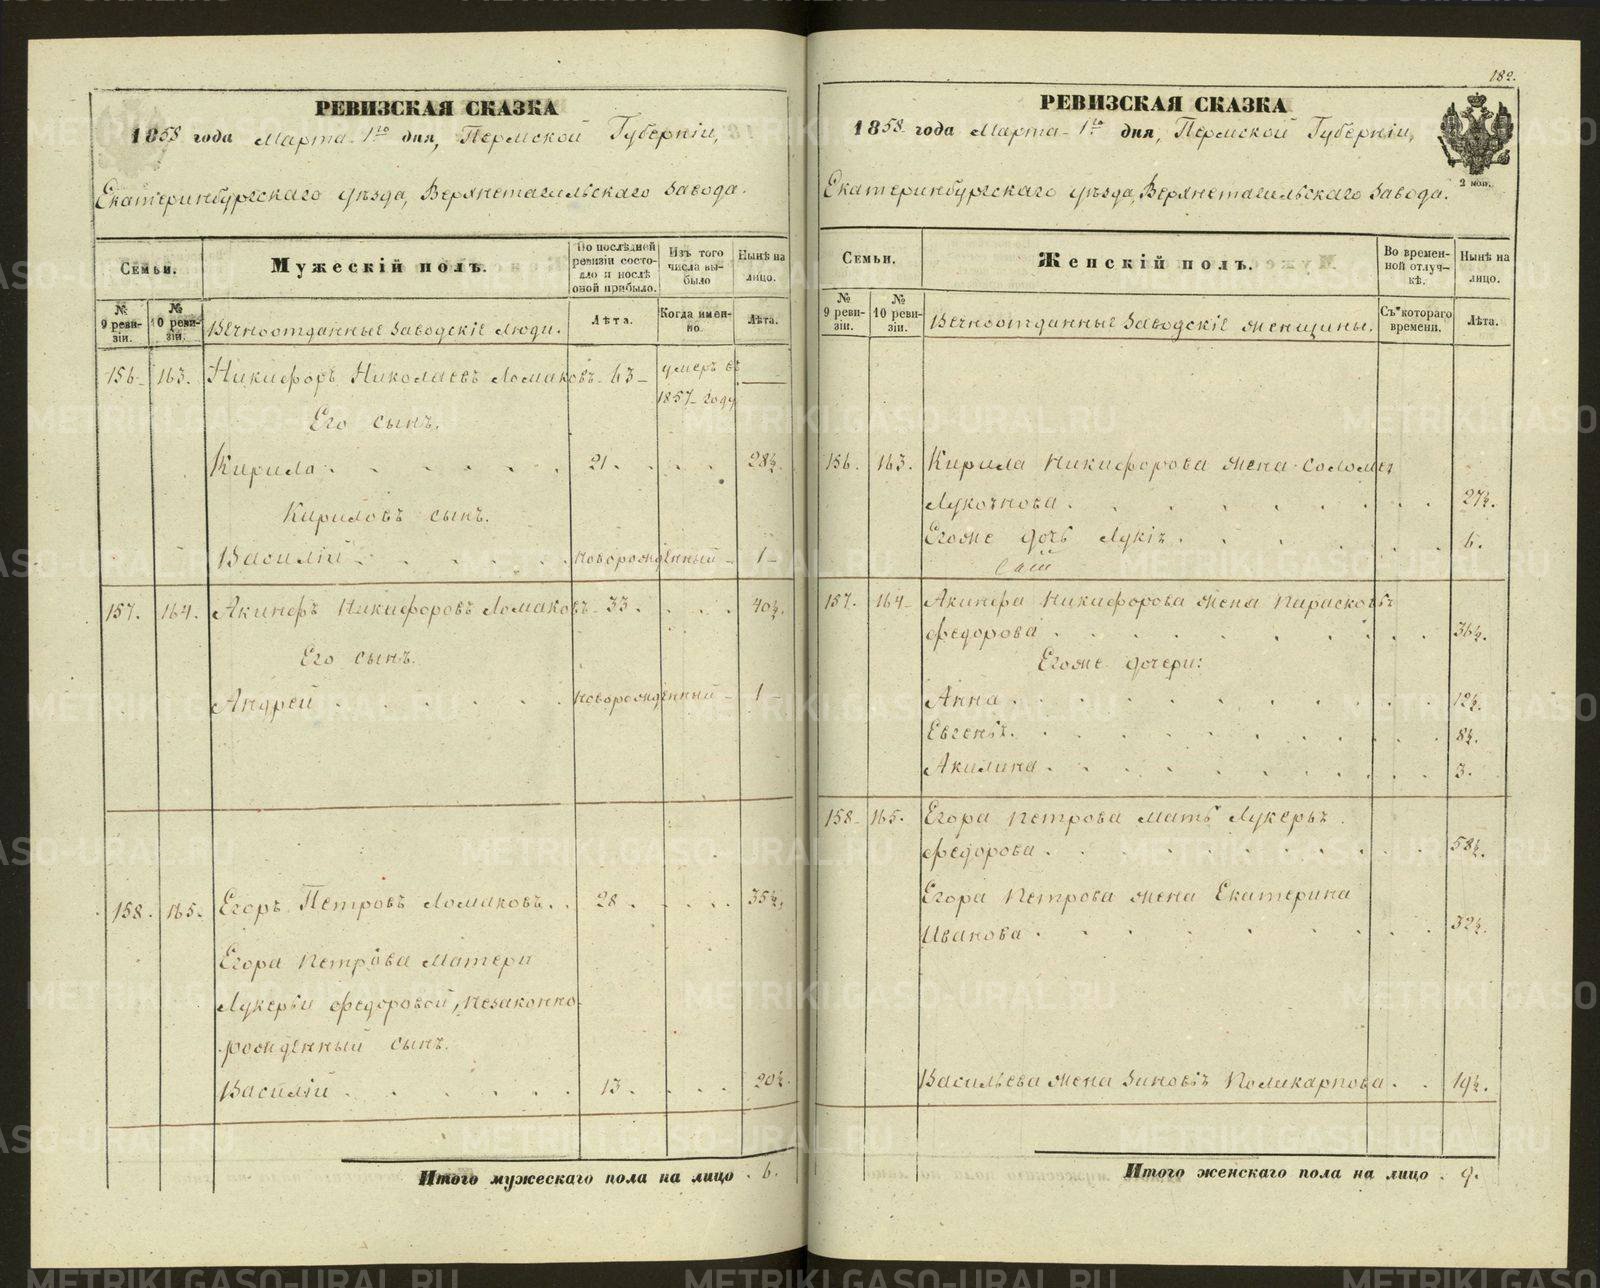 182.
РЕВИЗСКАЯ СКАЗКА
1858 года Марта 1го дня, Пермской Губерніи,
Екатеринбургскаго уѣзда, Верхнетагильскаго Завода.
Семьи.
Мужескій полъ.
По послѣдней ревизіи состояло и послѣ оной прибыло.
Изъ того числа выбыло
Нынѣ на лицо.
№ 9 ревизіи.
№ 10 ревизіи.
Вечноотданные Заводскіе люди.
Лѣта.
Когда именно.
Лѣта.
156. 163. Никифоръ Николаевъ Ломаковъ 63 умеръ въ 1857 году
Его сынъ.
Кирила 21. 28½.
Кириловъ сынъ.
Василій новорожденный 1
157. 164. Акинфъ Никифоровъ Ломаковъ 33. 40½.
Его сынъ.
Андрей новорожденный 1
158. 165. Егоръ Петровъ Ломаковъ 28 35½.
Егора Петрова Матери
Лукерьи Федоровой, незаконно
рожденный сынъ.
Василій 13. 20½.
Итого мужескаго пола на лицо 6.
РЕВИЗСКАЯ СКАЗКА
1858 года Марта 1го дня, Пермской Губерніи,
2 коп.
Екатеринбургскаго уѣзда, Верхнетагильскаго Завода.
Семьи.
Женскій полъ.
Во временной отлучкѣ.
Нынѣ на лицо.
№ 9 ревизіи.
№ 10 ревизіи.
Вечноотданные Заводскіе женщины.
Съ котораго времени.
Лѣта.
156. 163. Кирила Никифорова жена Соломея
Лукоянова 27½.
Егоже дочь Лукія 6.
157. 164 Акинфа Никифорова жена Парасковья
Федорова 36½.
Егоже дочери:
Анна 12½.
Евгенья 8½.
Акилина 3.
158 165. Егора Петрова мать Лукерья
Федорова 58½.
Егора Петрова жена Екатерина
Иванова 32½.
Васильева жена Зиновія Поликарпова 19½.
Итого женскаго пола на лицо 9.
METRIKI.GASO-URAL.RU